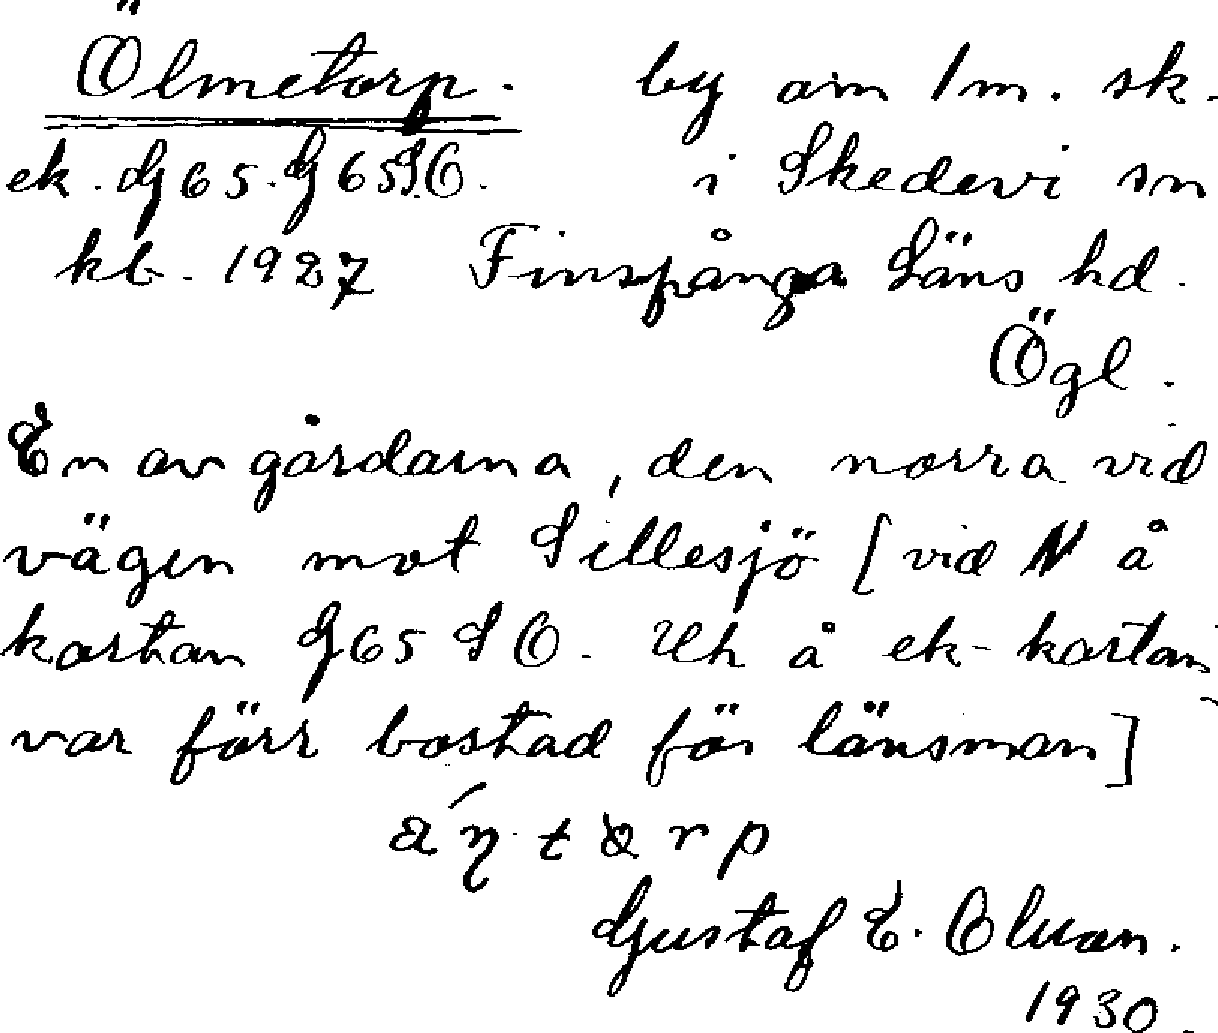 Ölmetorp. by om 1 m. sk.
ek. G 65. G 65 SO. i Skedevi sn
kb. 1927 Finspånga Läns hd.
Ögl.
En av gårdarna, den norra vid
vägen mot Sillesjö [vid N å
kartan G 65 S O. Uh å ek-kartan
var förr bostad för länsman]
Gustaf E. Oluan.
1930.